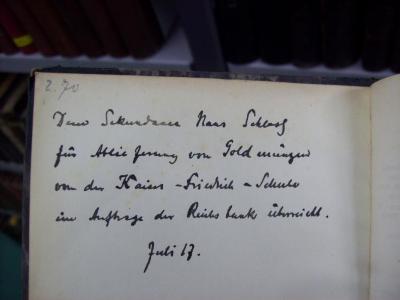 2.70
Dem Sekundaner Hans
für Ablieferung von Goldmünzen
von der Kaiser-Friedrich-Schule
im Auftrage der Reichsbank überreicht.
Juli 17.